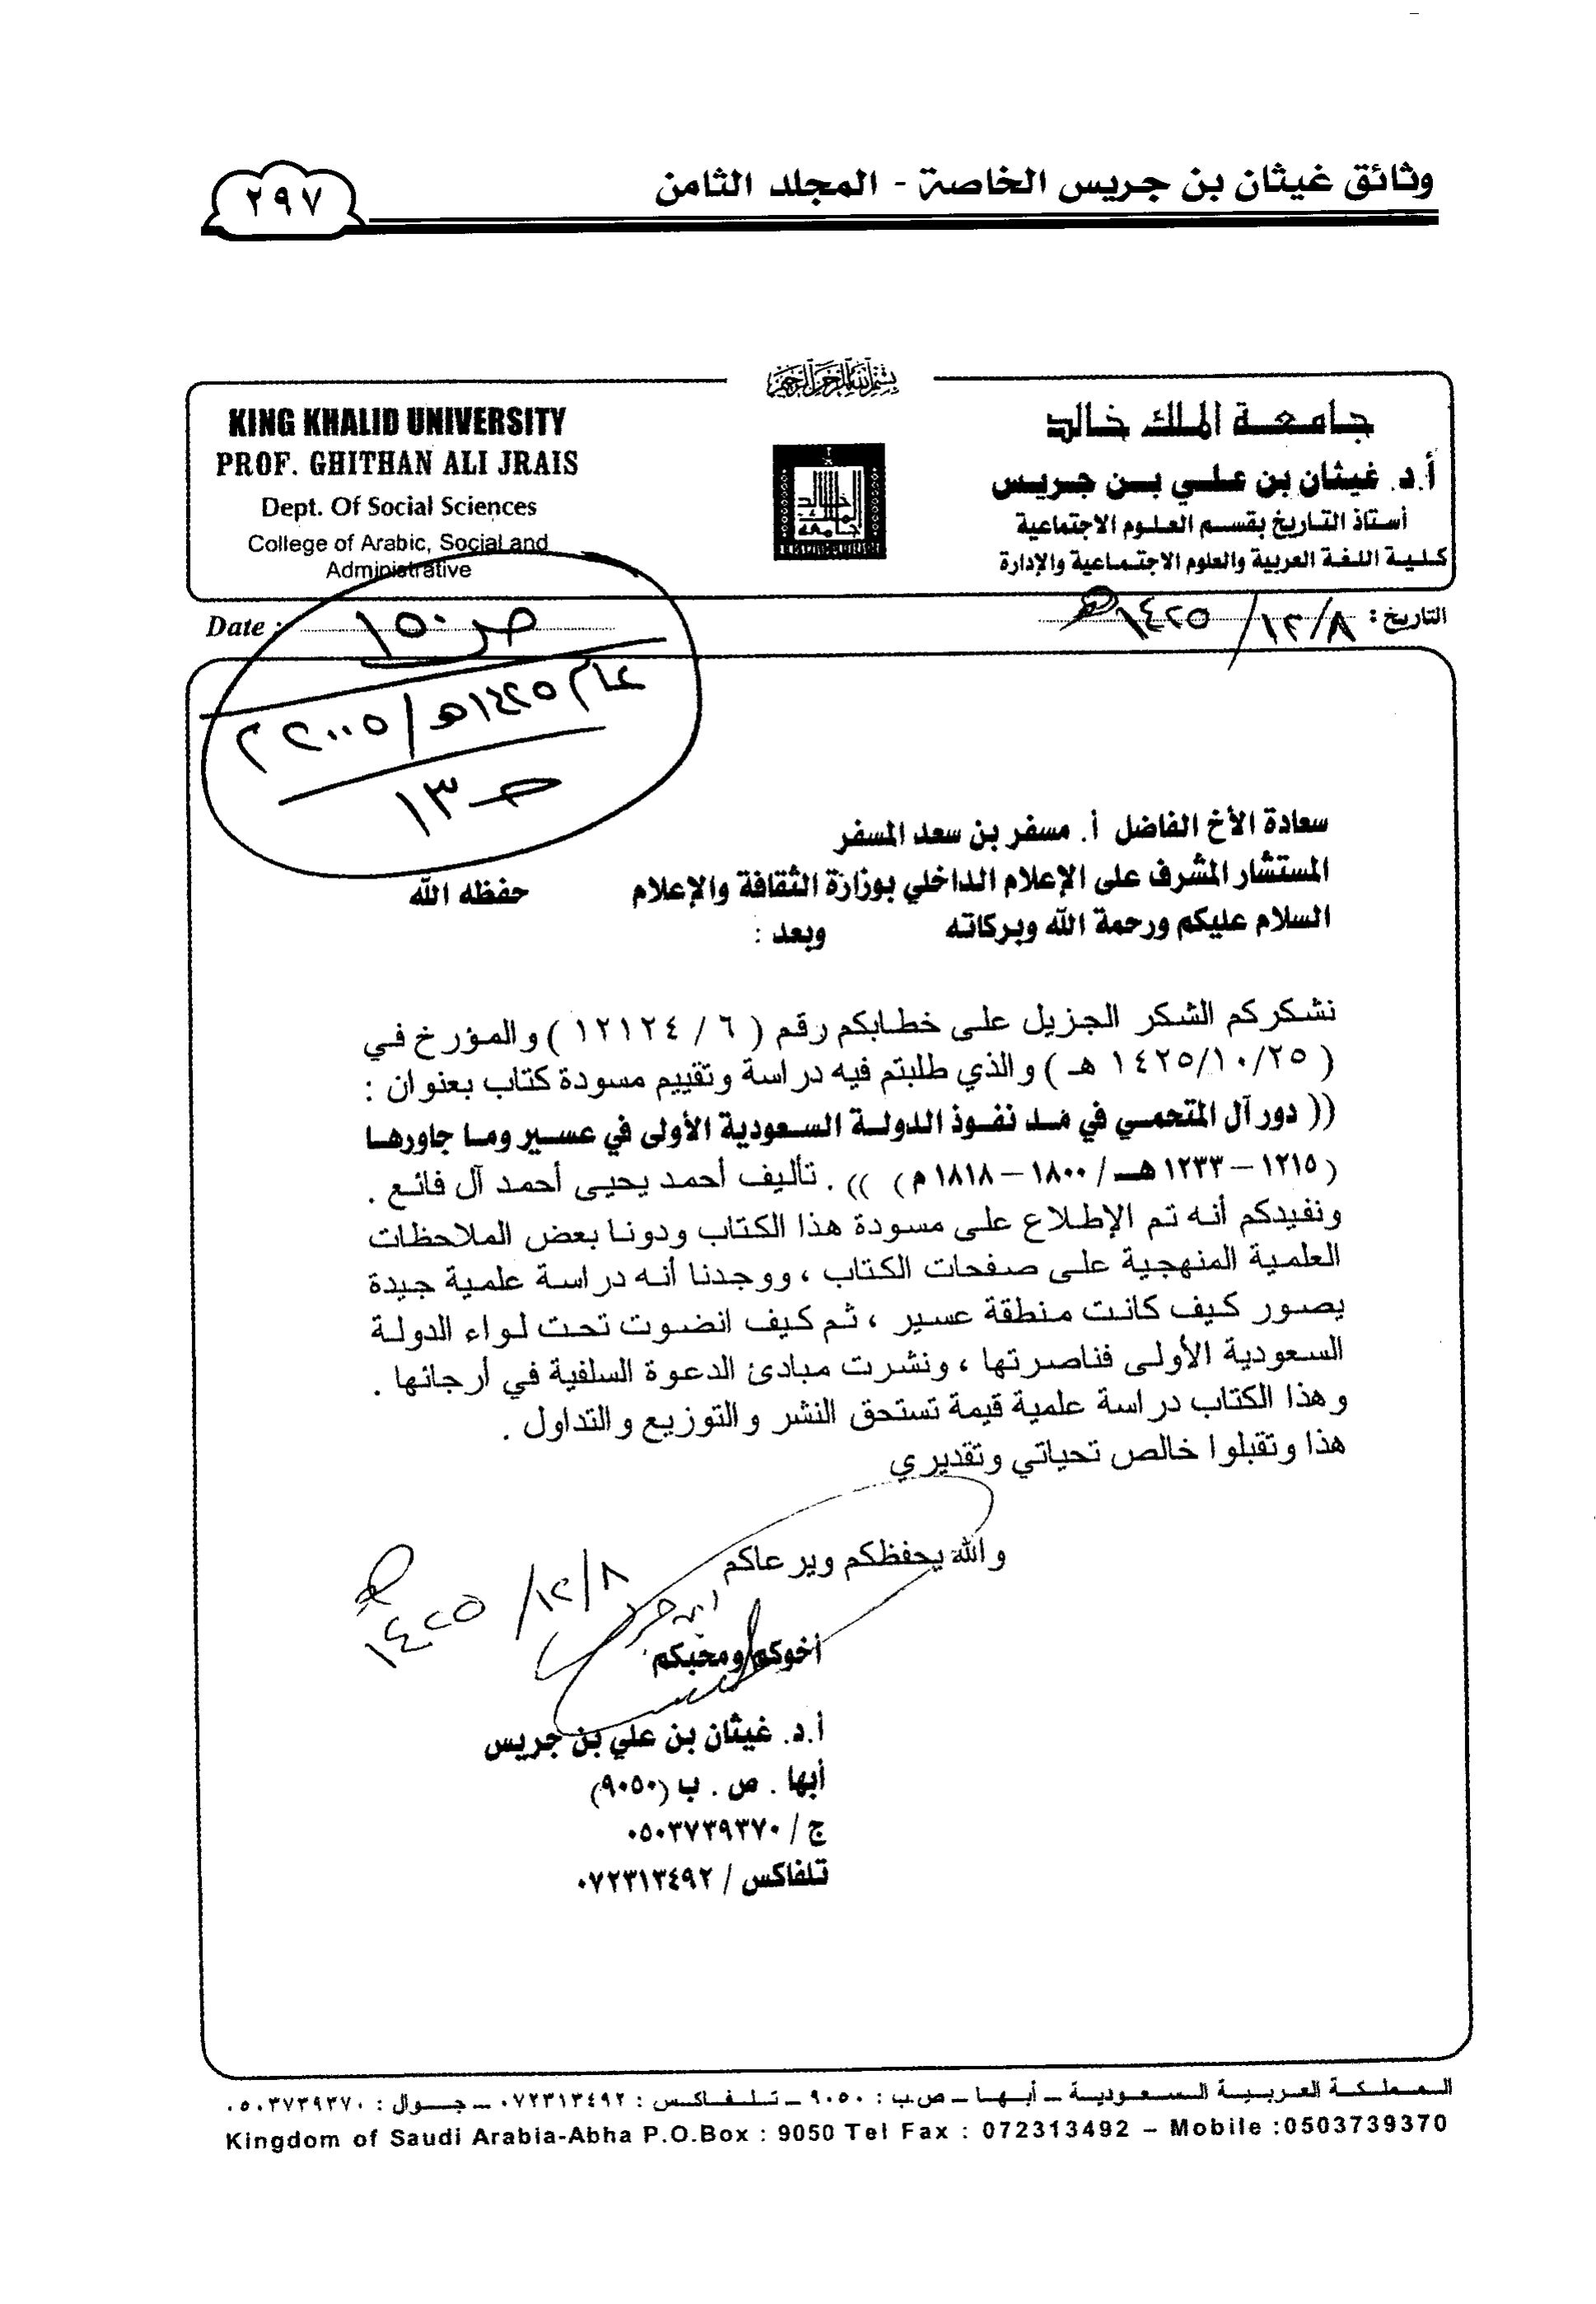 وثائق غيثان بن جريس الخاصة - المجلد الثامن
٢٩٧
بسم الله الرحمن الرحيم
جامعة الملك خالد
أ.د. غيثان بن علي بن جريس
أستاذ التاريخ بقسم العلوم الاجتماعية
كلية اللغة العربية والعلوم الاجتماعية والإدارة
KING KHALID UNIVERSITY
PROF. GHITHAN ALI JRAIS
Dept. Of Social Sciences
College of Arabic, Social and
Administrative
التاريخ : ٨/١٢/١٤٢٥هـ
Date :
ص ١٥٠
عام ١٤٢٥هـ/٢٠٠٥م
حـ ١٣
سعادة الأخ الفاضل أ. مسفر بن سعد المسفر
المستشار المشرف على الإعلام الداخلي بوزارة الثقافة والإعلام حفظه الله
السلام عليكم ورحمة الله وبركاته وبعد :
نشكركم الشكر الجزيل على خطابكم رقم ( ٦ / ١٢١٢٤ ) والمؤرخ في
( ١٤٢٥/١٠/٢٥ هـ ) والذي طلبتم فيه دراسة وتقييم مسودة كتاب بعنوان :
(( دور آل المتحمي في مد نفوذ الدولة السعودية الأولى في عسير وما جاورها
( ١٢١٥ – ١٢٣٣ هـ / ١٨٠٠ – ١٨١٨ م ) )) . تأليف أحمد يحيى أحمد آل فائع .
ونفيدكم أنه تم الإطلاع على مسودة هذا الكتاب ودونا بعض الملاحظات
العلمية المنهجية على صفحات الكتاب ، ووجدنا أنه دراسة علمية جيدة
يصور كيف كانت منطقة عسير ، ثم كيف انضوت تحت لواء الدولة
السعودية الأولى فناصرتها ، ونشرت مبادئ الدعوة السلفية في أرجائها .
وهذا الكتاب دراسة علمية قيمة تستحق النشر والتوزيع والتداول .
هذا وتقبلوا خالص تحياتي وتقديري
والله يحفظكم ويرعاكم
٨/١٢/١٤٢٥هـ
أخوكم ومحبكم
أ.د. غيثان بن علي بن جريس
أبها . ص . ب (٩٠٥٠)
ج / ٠٥٠٣٧٣٩٣٧٠
تلفاكس / ٠٧٢٣١٣٤٩٢
المملكة العربية السعودية – أبها – ص.ب : ٩٠٥٠ – تلفاكس : ٠٧٢٣١٣٤٩٢ – جوال : ٠٥٠٣٧٣٩٣٧٠
Kingdom of Saudi Arabia-Abha P.O.Box : 9050 Tel Fax : 072313492 – Mobile :0503739370